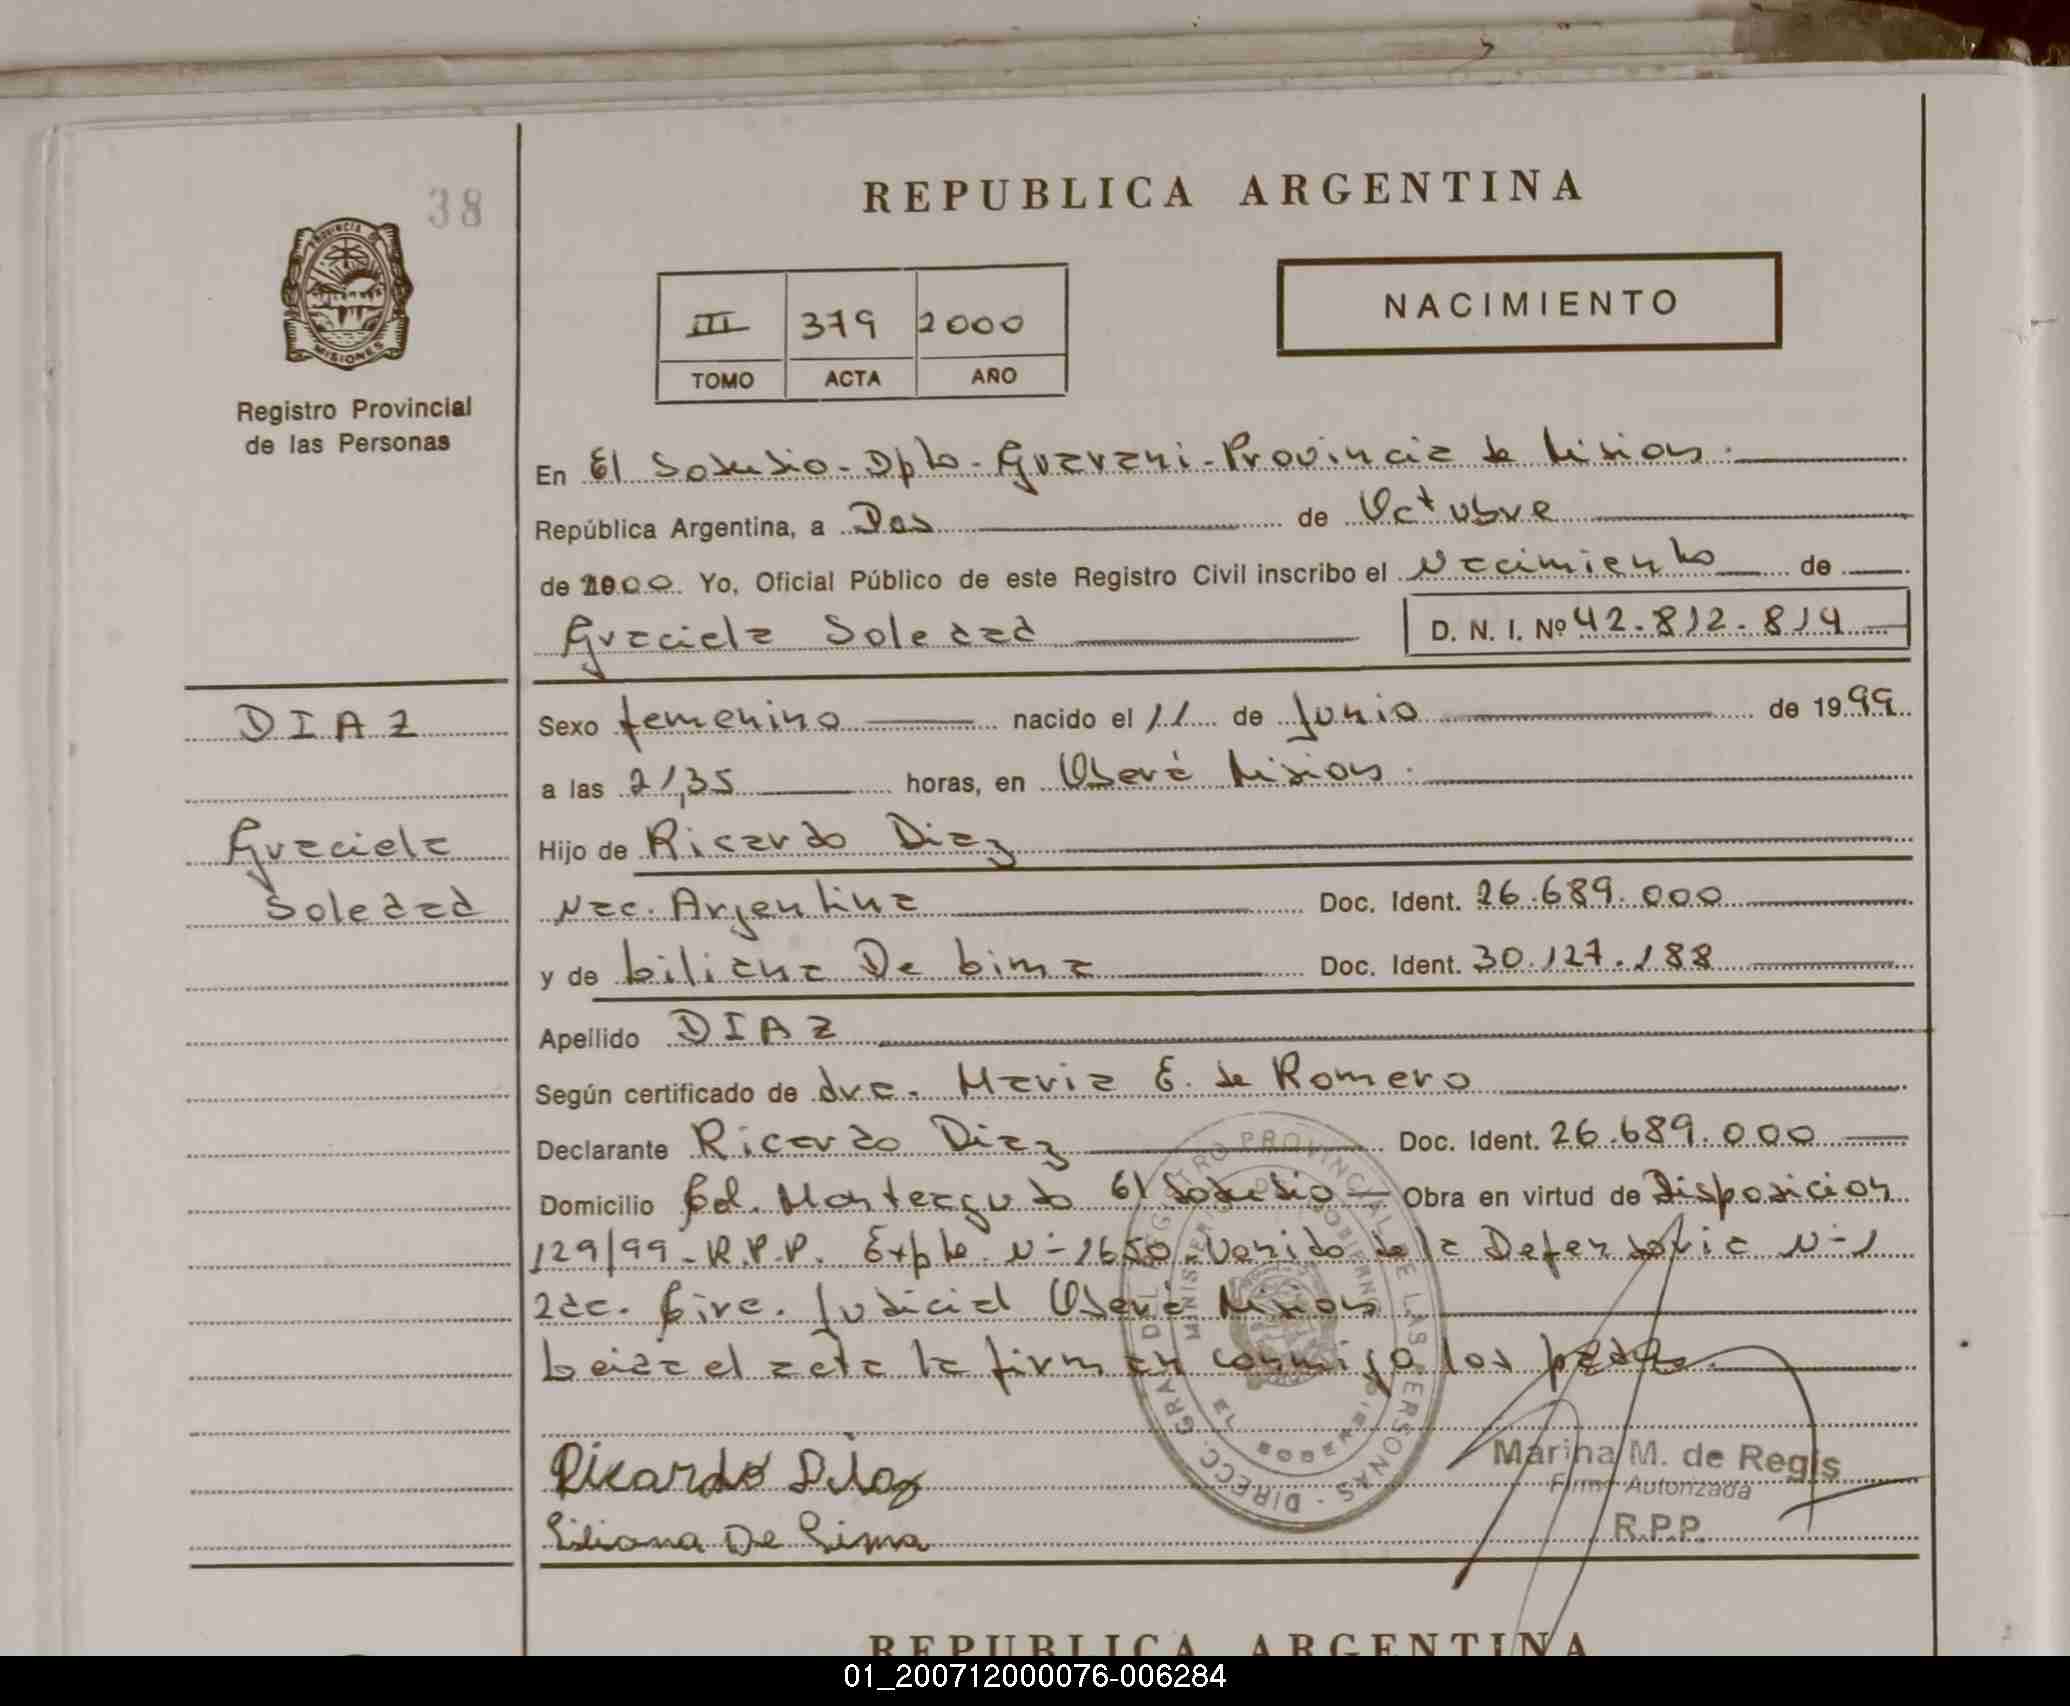 38
REPUBLICA ARGENTINA
PROVINCIA DE
MISIONES
Registro Provincial
de las Personas
NACIMIENTO
III 379 2000
TOMO ACTA AÑO
En El Soberbio - Dpto - Guarani - Provincia de Misiones.
República Argentina, a Dos de Octubre
de 2000 Yo, Oficial Público de este Registro Civil inscribo el Nacimiento de
Graciela Soledad
D. N. I. Nº 42.812.814
DIAZ
Graciela
Soledad
Sexo femenino nacido el 11 de Junio de 1999
a las 21,35 horas, en Oberá Misiones.
Hijo de Ricardo Diaz
Nac. Argentina Doc. Ident. 26.689.000
y de Liliana De Lima Doc. Ident. 30.127.188
Apellido DIAZ
Según certificado de dra. Maria E. de Romero
Declarante Ricardo Diaz Doc. Ident. 26.689.000
Domicilio Col. Monteagudo El Soberbio Obra en virtud de Disposicion
129/99 - R.P.P. Expte. Nº 1650. Venido de la Defensoria Nº 1
2da. Circ. Judicial Oberá Misiones
Leida el acta la firman conmigo los padres.
DIRECC. GRAL. DEL REGISTRO PROVINCIAL DE LAS PERSONAS
MINISTERIO DE GOBIERNO
EL SOBERBIO
Ricardo Diaz
Liliana De Lima
Marina M. de Regis
Firma Autorizada
R.P.P.
REPUBLICA ARGENTINA
01_200712000076-006284